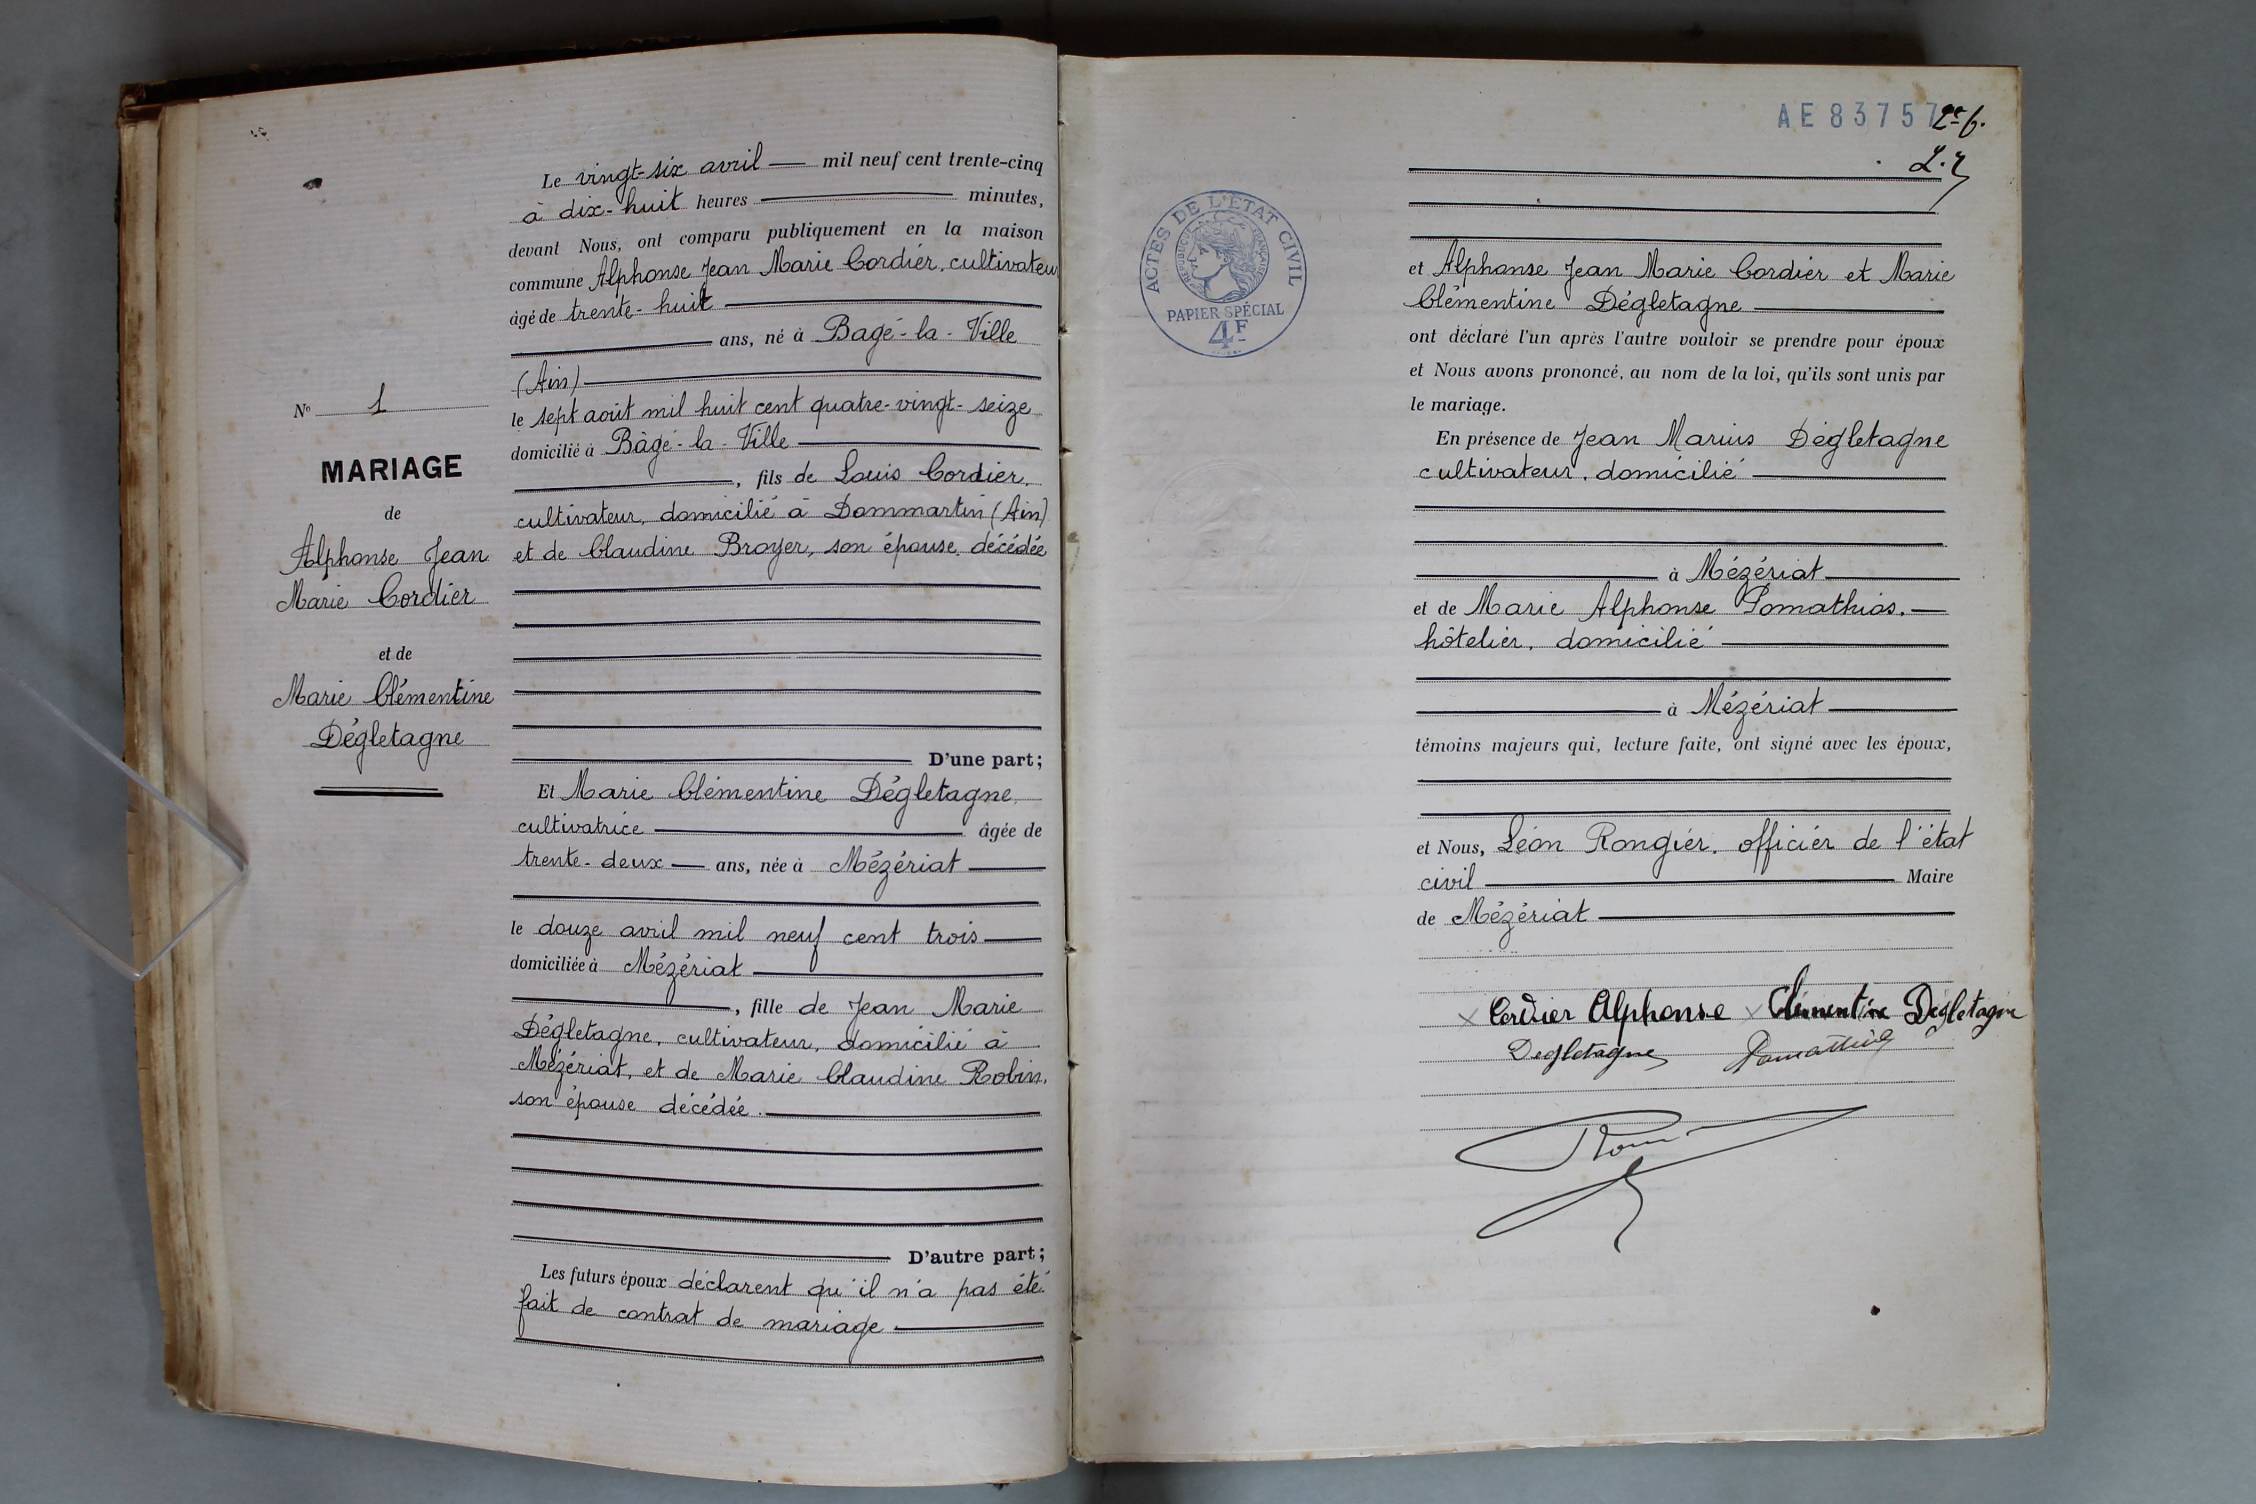 N° 1
MARIAGE
de
Alphonse Jean
Marie Cordier
et de
Marie Clémentine
Dégletagne
Le vingt-six avril mil neuf cent trente-cinq
à dix-huit heures minutes,
devant Nous, ont comparu publiquement en la maison
commune Alphonse Jean Marie Cordier, cultivateur
âgé de trente-huit
ans, né à Bagé-la-Ville
(Ain)
le sept août mil huit cent quatre-vingt-seize
domicilié à Bâgé-la-Ville
, fils de Louis Cordier,
cultivateur, domicilié à Dommartin (Ain)
et de Claudine Broyer, son épouse, décédée
D'une part;
Et Marie Clémentine Dégletagne,
cultivatrice âgée de
trente-deux ans, née à Mézériat
le douze avril mil neuf cent trois
domiciliée à Mézériat
, fille de Jean Marie
Dégletagne, cultivateur, domicilié à
Mézériat, et de Marie Claudine Robin,
son épouse décédée.
D'autre part;
Les futurs époux déclarent qu'il n'a pas été
fait de contrat de mariage
AE83757
2e f.
ACTES DE L'ÉTAT CIVIL
RÉPUBLIQUE FRANÇAISE
PAPIER SPÉCIAL
4F
et Alphonse Jean Marie Cordier et Marie
Clémentine Dégletagne
ont déclaré l'un après l'autre vouloir se prendre pour époux
et Nous avons prononcé, au nom de la loi, qu'ils sont unis par
le mariage.
En présence de Jean Marius Dégletagne
cultivateur, domicilié
à Mézériat
et de Marie Alphonse Pomathios,
hôtelier, domicilié
à Mézériat
témoins majeurs qui, lecture faite, ont signé avec les époux,
et Nous, Léon Rongier, officier de l'état
civil Maire
de Mézériat
x Cordier Alphonse x Clémentine Dégletagne
Degletagne Pomathios